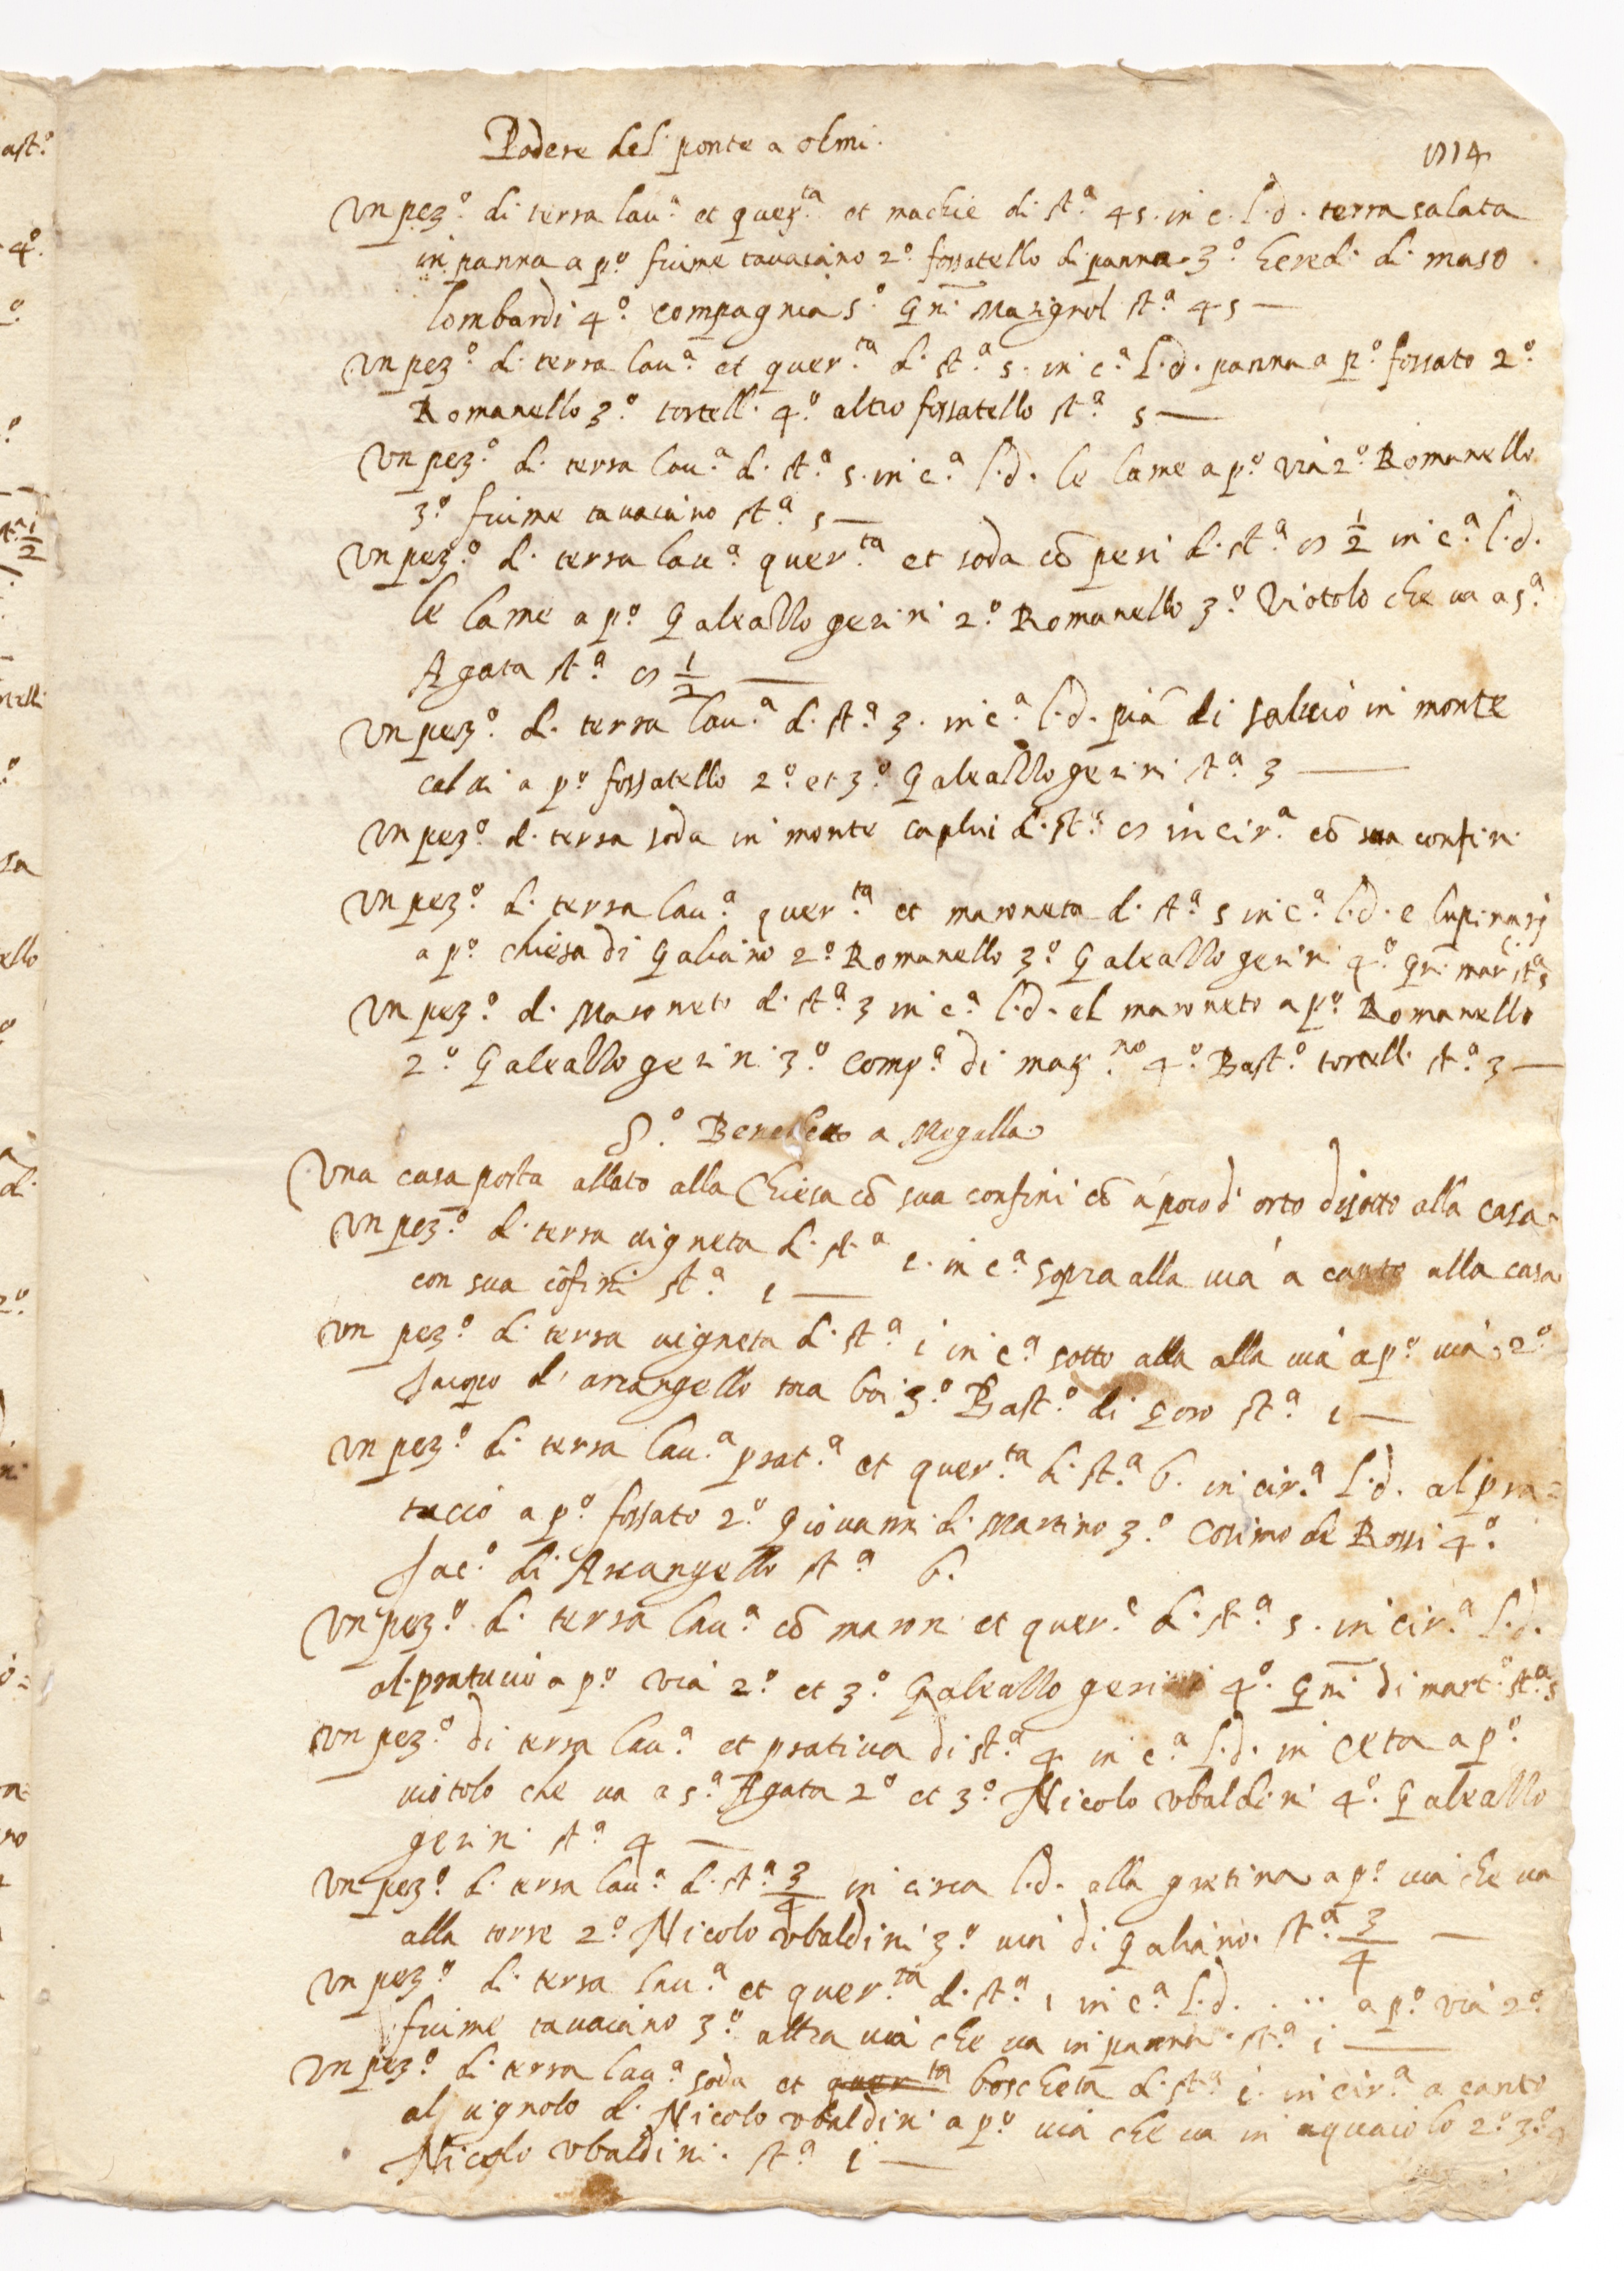 Podere del ponte a olmi.
1714
Un pez.º di terra lau.ª et quer.ta et machie di st.ª 45. in c. l.d. terra salata
in panna a p.º fiume tavaiano 2.º fossatello di panna 3.º heredi di maso
lombardi 4.º compagnia 5.º Gni. Marignol st.ª 45 —
Un pez.º di terra lau.ª et quer.ta di st.ª 5. in c.ª l.d. panna a p.º fossato 2.º
Romanello 3.º tortelli 4.º altro fossatello st.ª 5 —
Un pez.º di terra lau.ª di st.ª 5. in c.ª l.d. le lame a p.º via 2.º Romanello
3.º fiume tavaiano st.ª 5 —
Un pez.º di terra lau.ª quer.ta et soda cō peri di st.ª 1/2 in c.ª l.d.
le lame a p.º Galeazzo gerini 2.º Romanello 3.º Viotolo che va a s.ª
Agata st.ª 1/2 —
Un pez.º di terra lau.ª di st.ª 3. in c.ª l.d. pia di in monte
calvi a p.º fossatello 2.º et 3.º Galeazzo gerini st.ª 3 —
Un pez.º di terra soda in monte di st.ª in cir.ª cō sua confini
Un pez.º di terra lau.ª quer.ta et maroneta di st.ª 5 in c.ª l.d. e lupinarj
a p.º chiesa di Galiano 2.º Romanello 3.º Galeazzo gerini 4.º Gni. mar. st.ª 5
Un pez.º di Maroneto di st.ª 3 in c.ª l.d. el maroneto a p.º Romanello
2.º Galeazzo gerini 3.º Comp.ª di mag.no 4.º Bast.º tortelli st.ª 3 —
S.º Benedetto a Mogalla
Una casa posta allato alla Chiesa cō sua confini cō ū poco d'orto disotto alla casa.
Un pez.º di terra vigneta di st.ª 1. in c.ª sopra alla via a canto alla casa
con sua cōfini st.ª 1 —
Un pez.º di terra vigneta di st.ª i in c.ª sotto alla alla via a p.º via 2.º
Jacopo d'arcangello 3.º Bast.º di goro st.ª 1 —
Un pez.º di terra lau.ª prat.ª et quer.ta di st.ª 6. in cir.ª l.d. al pra=
tuccio a p.º fossato 2.º Giovanni di Martino 3.º Cosimo de Rossi 4.º
Jac.º di Arcangello st.ª 6.
Un pez.º di terra lau.ª cō maroni et quer.e di st.ª 5. in cir.ª l.d.
al pratuccio a p.º via 2.º et 3.º Galeazzo gerini 4.º Gni di mart.º st.ª 5
Un pez.º di terra lau.ª et prativa di st.ª 4 in c.ª l.d. in ceta a p.º
viotolo che va a s.ª Agata 2.º et 3.º Nicolo ubaldini 4.º Galeazzo
gerini st.ª 4 —
Un pez.º di terra lau.ª di st.ª 3/4 in circa l.d. alla gretina a p.º via che va
alla torre 2.º Nicolo ubaldini 3.º via di galiano. st.ª 3/4 —
Un pez.º di terra lau.ª et quer.ta di st.ª 1 in c.ª l.d. . .. a p.º via 2.º
fiume tavaiano 3.º altra via che va in panna. st.ª i —
Un pez.º di terra lau.ª soda et quer.ta boscheta di st.ª i. in cir.ª a canto
al vignolo di Nicolo ubaldini a p.º via che va in aquaiolo 2.º 3.º
Nicolo ubaldini. st.ª i —